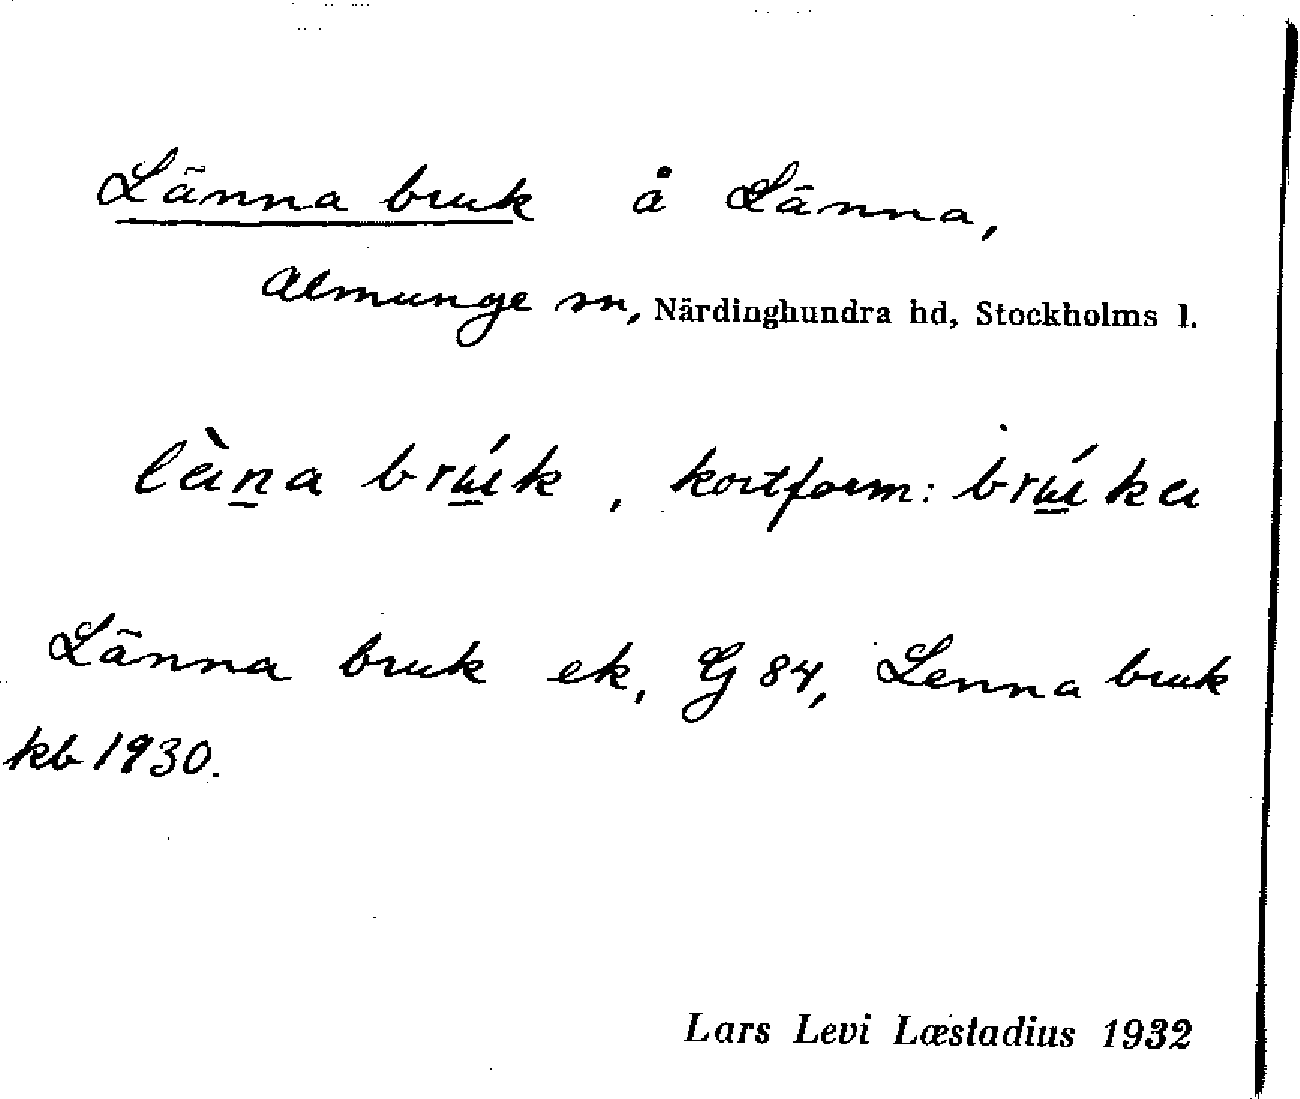 Länna bruk å Länna,
Almunge sn, Närdinghundra hd, Stockholms l.
lä̀n̲a brú̲k, kortform: brú̲ka
Länna bruk ek, G 84, Lenna bruk
kb 1930.
Lars Levi Læstadius 1932